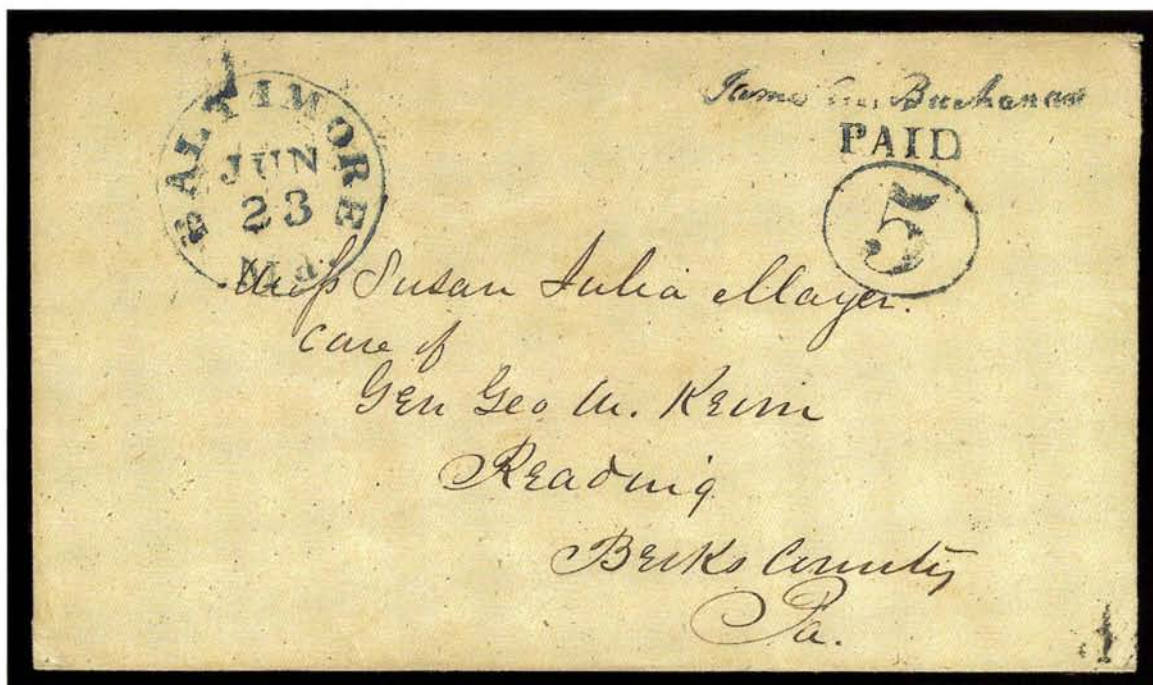 BALTIMORE
JUN
23
Md.
James M. Buchanan
PAID
5
Miss Susan Julia Mayer.
Care of
Gen Geo M. Keim
Reading
Berks County
Pa.